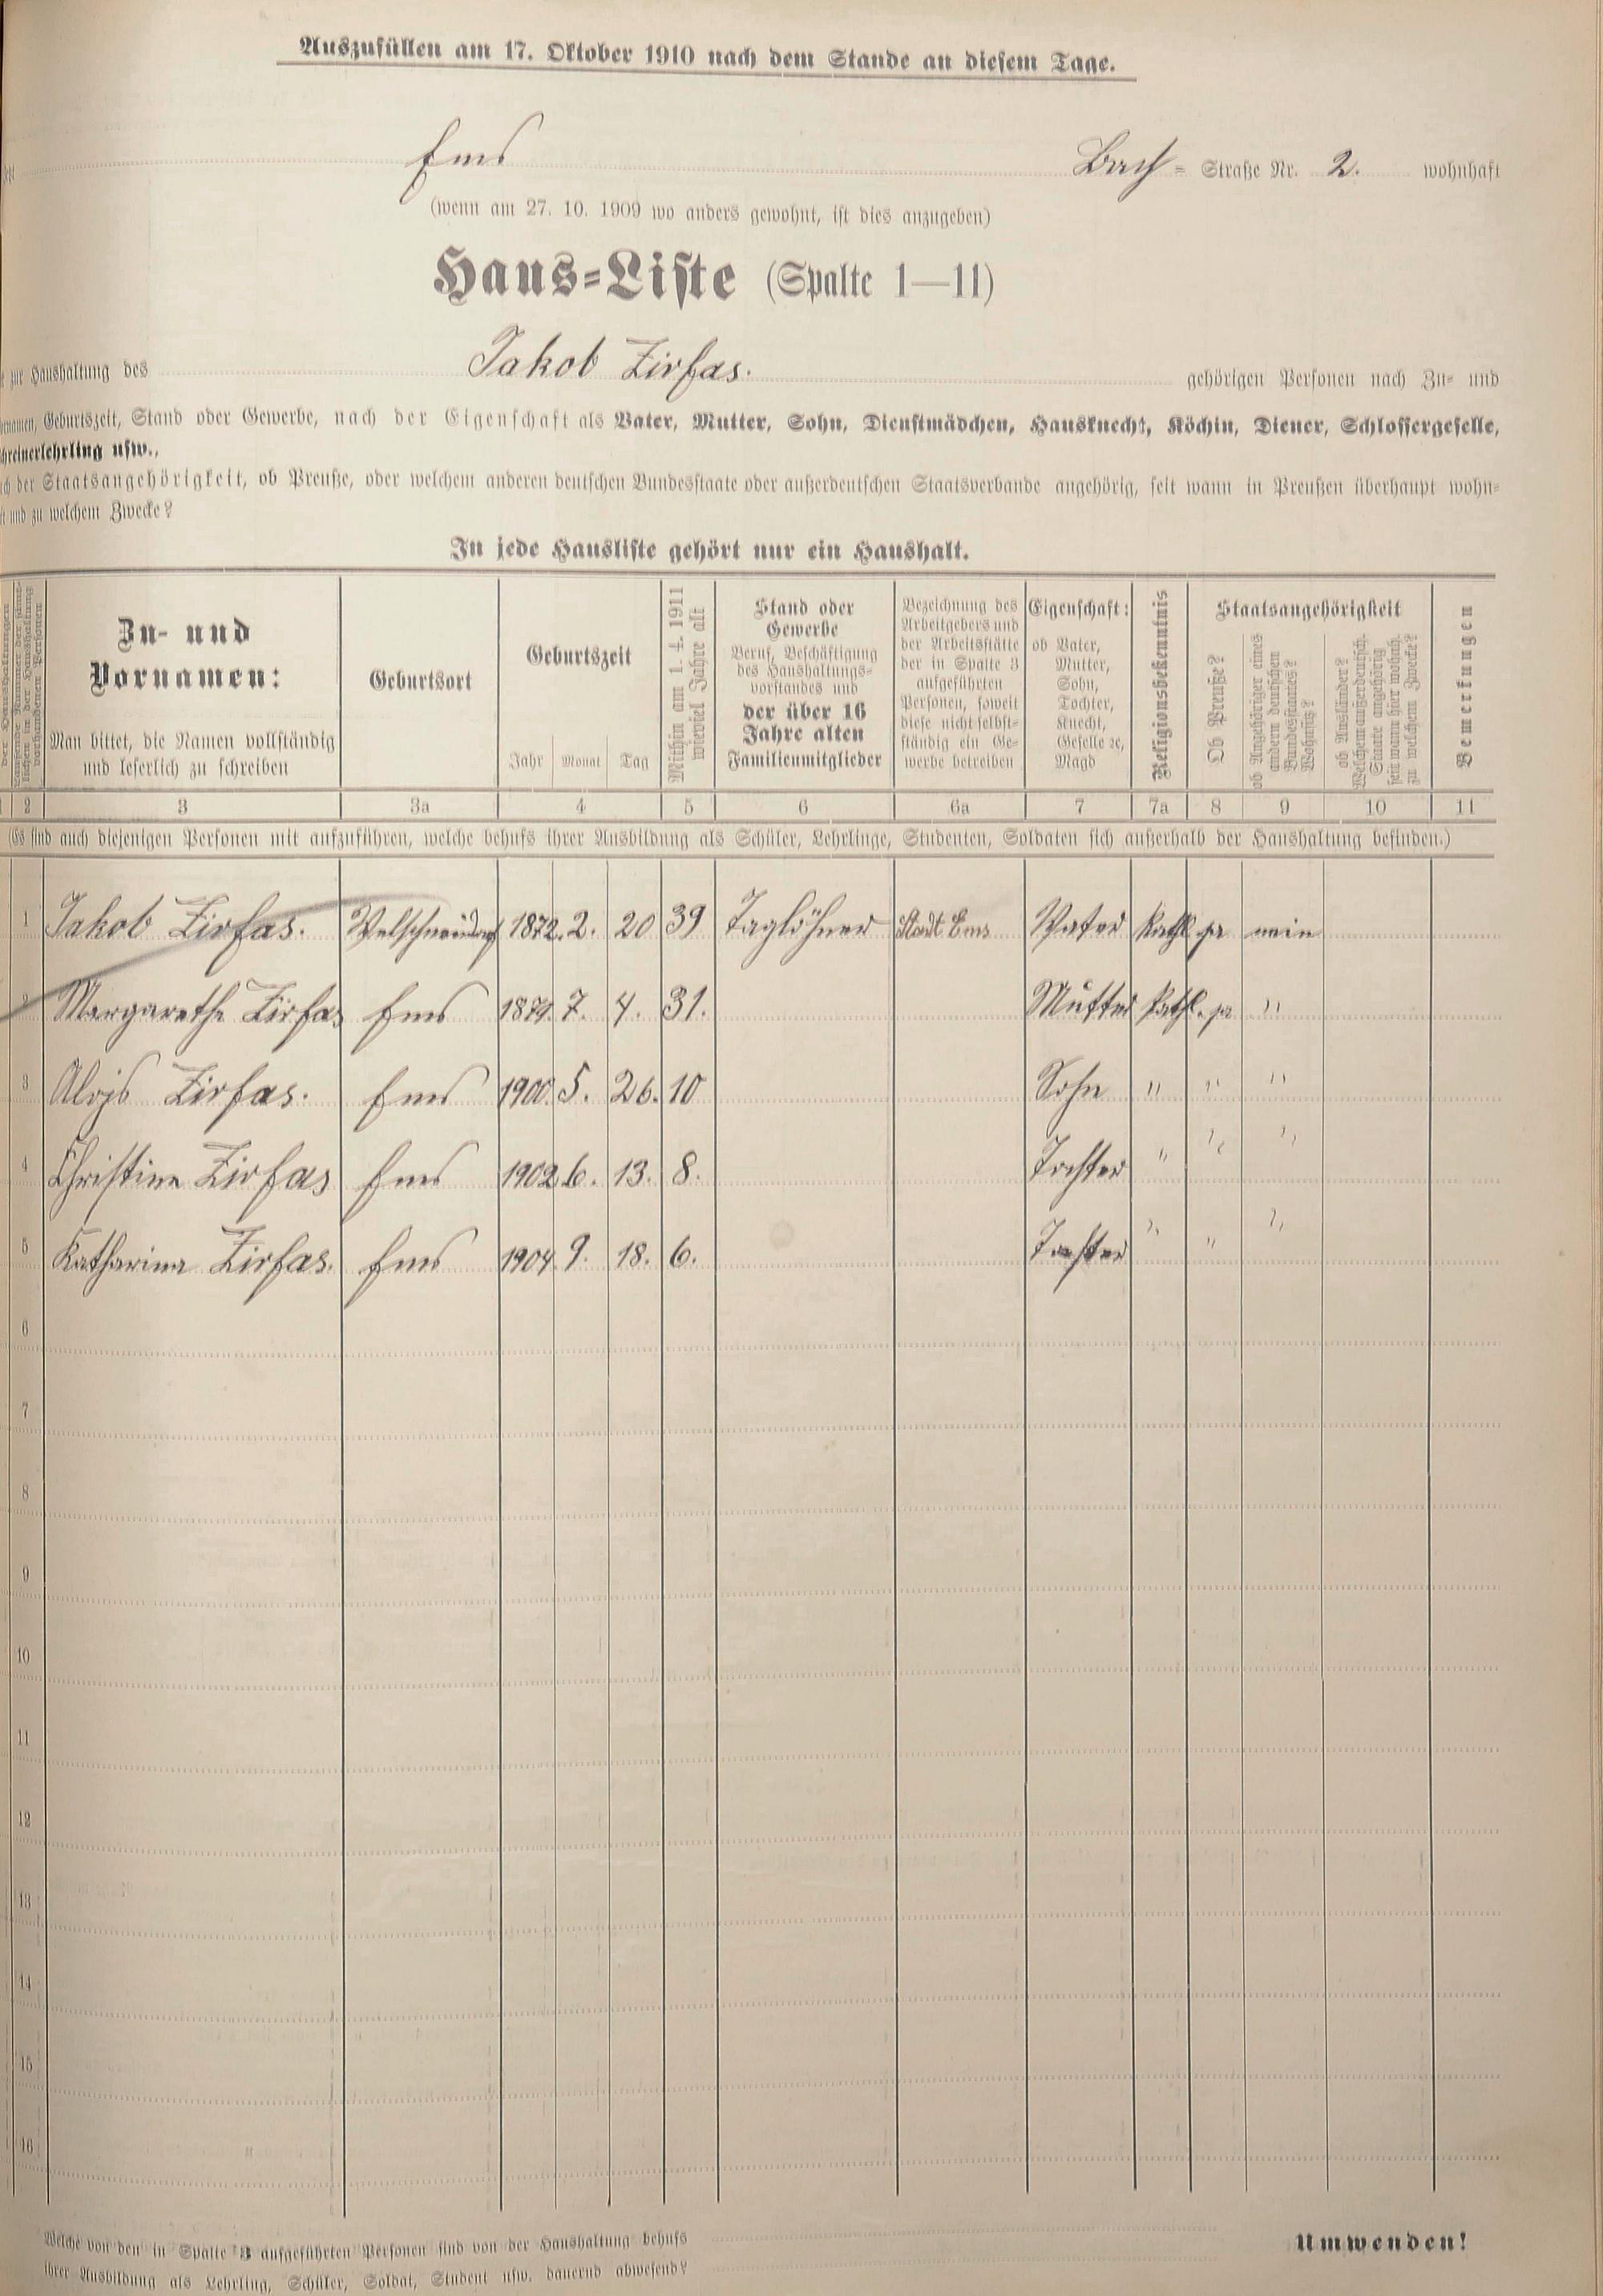 Auszufüllen am 17. Oktober 1910 nach dem Stande an diesem Tage.
Ems Bach = Straße Nr. 2. wohnhaft
(wenn am 27. 10. 1909 wo anders gewohnt, ist dies anzugeben)
Haus=Liste (Spalte 1—11)
zur Haushaltung des Jakob Zirfas. gehörigen Personen nach Zu= und
Geburtszeit, Stand oder Gewerbe, nach der Eigenschaft als Vater, Mutter, Sohn, Dienstmädchen, Hausknecht, Köchin, Diener, Schlossergeselle,
usw.,
der Staatsangehörigkeit, ob Preuße, oder welchem anderen deutschen Bundesstaate oder außerdeutschen Staatsverbande angehörig, seit wann in Preußen überhaupt wohn=
und zu welchem Zwecke?
In jede Hausliste gehört nur ein Haushalt.
Zu- und
Vornamen:
Man bittet, die Namen vollständig
und leserlich zu schreiben
Geburtsort
Geburtszeit
Jahr Monat Tag
Mithin am 1. 4. 1911
wieviel Jahre alt
Stand oder
Gewerbe
Beruf, Beschäftigung
des Haushaltungs=
vorstandes und
der über 16
Jahre alten
Familienmitglieder
Bezeichnung des
Arbeitgebers und
der Arbeitsstätte
der in Spalte 3
aufgeführten
Personen, soweit
diese nicht selbst=
ständig ein Ge=
werbe betreiben
Eigenschaft:
ob Vater,
Mutter,
Sohn,
Tochter,
Knecht,
Geselle 2c,
Magd
Religionsbekenntnis
Staatsangehörigkeit
Ob Preuße?
ob Angehöriger eines
andern deutschen
Bundesstaates?
Wohnsitz?
ob Ausländer?
Welchem außerdeutsch.
Staate angehörig
seit wann hier wohnh.
zu welchem Zwecke?
Bemerkungen
2 3 3a 4 5 6 6a 7 7a 8 9 10 11
(Es sind auch diejenigen Personen mit aufzuführen, welche behufs ihrer Ausbildung als Schüler, Lehrlinge, Studenten, Soldaten sich außerhalb der Haushaltung befinden.)
1 Jakob Zirfas. Welschneudorf 1872. 2. 20 39 Taglöhner Stadt Ems Vater Kath. ja nein
2 Margarethe Zirfas Ems 1879. 7. 4. 31. Mutter Kath. ja "
3 Alois Zirfas. Ems 1900. 5. 26. 10 Sohn " " "
4 Christine Zirfas Ems 1902 6. 13. 8. Tochter " " "
5 Katharina Zirfas. Ems 1904 9. 18. 6. Tochter " " "
6
7
8
9
10
11
12
13
14
15
16
Welche von den in Spalte 3 aufgeführten Personen sind von der Haushaltung behufs
ihrer Ausbildung als Lehrling, Schüler, Soldat, Student usw. dauernd abwesend?
Umwenden!